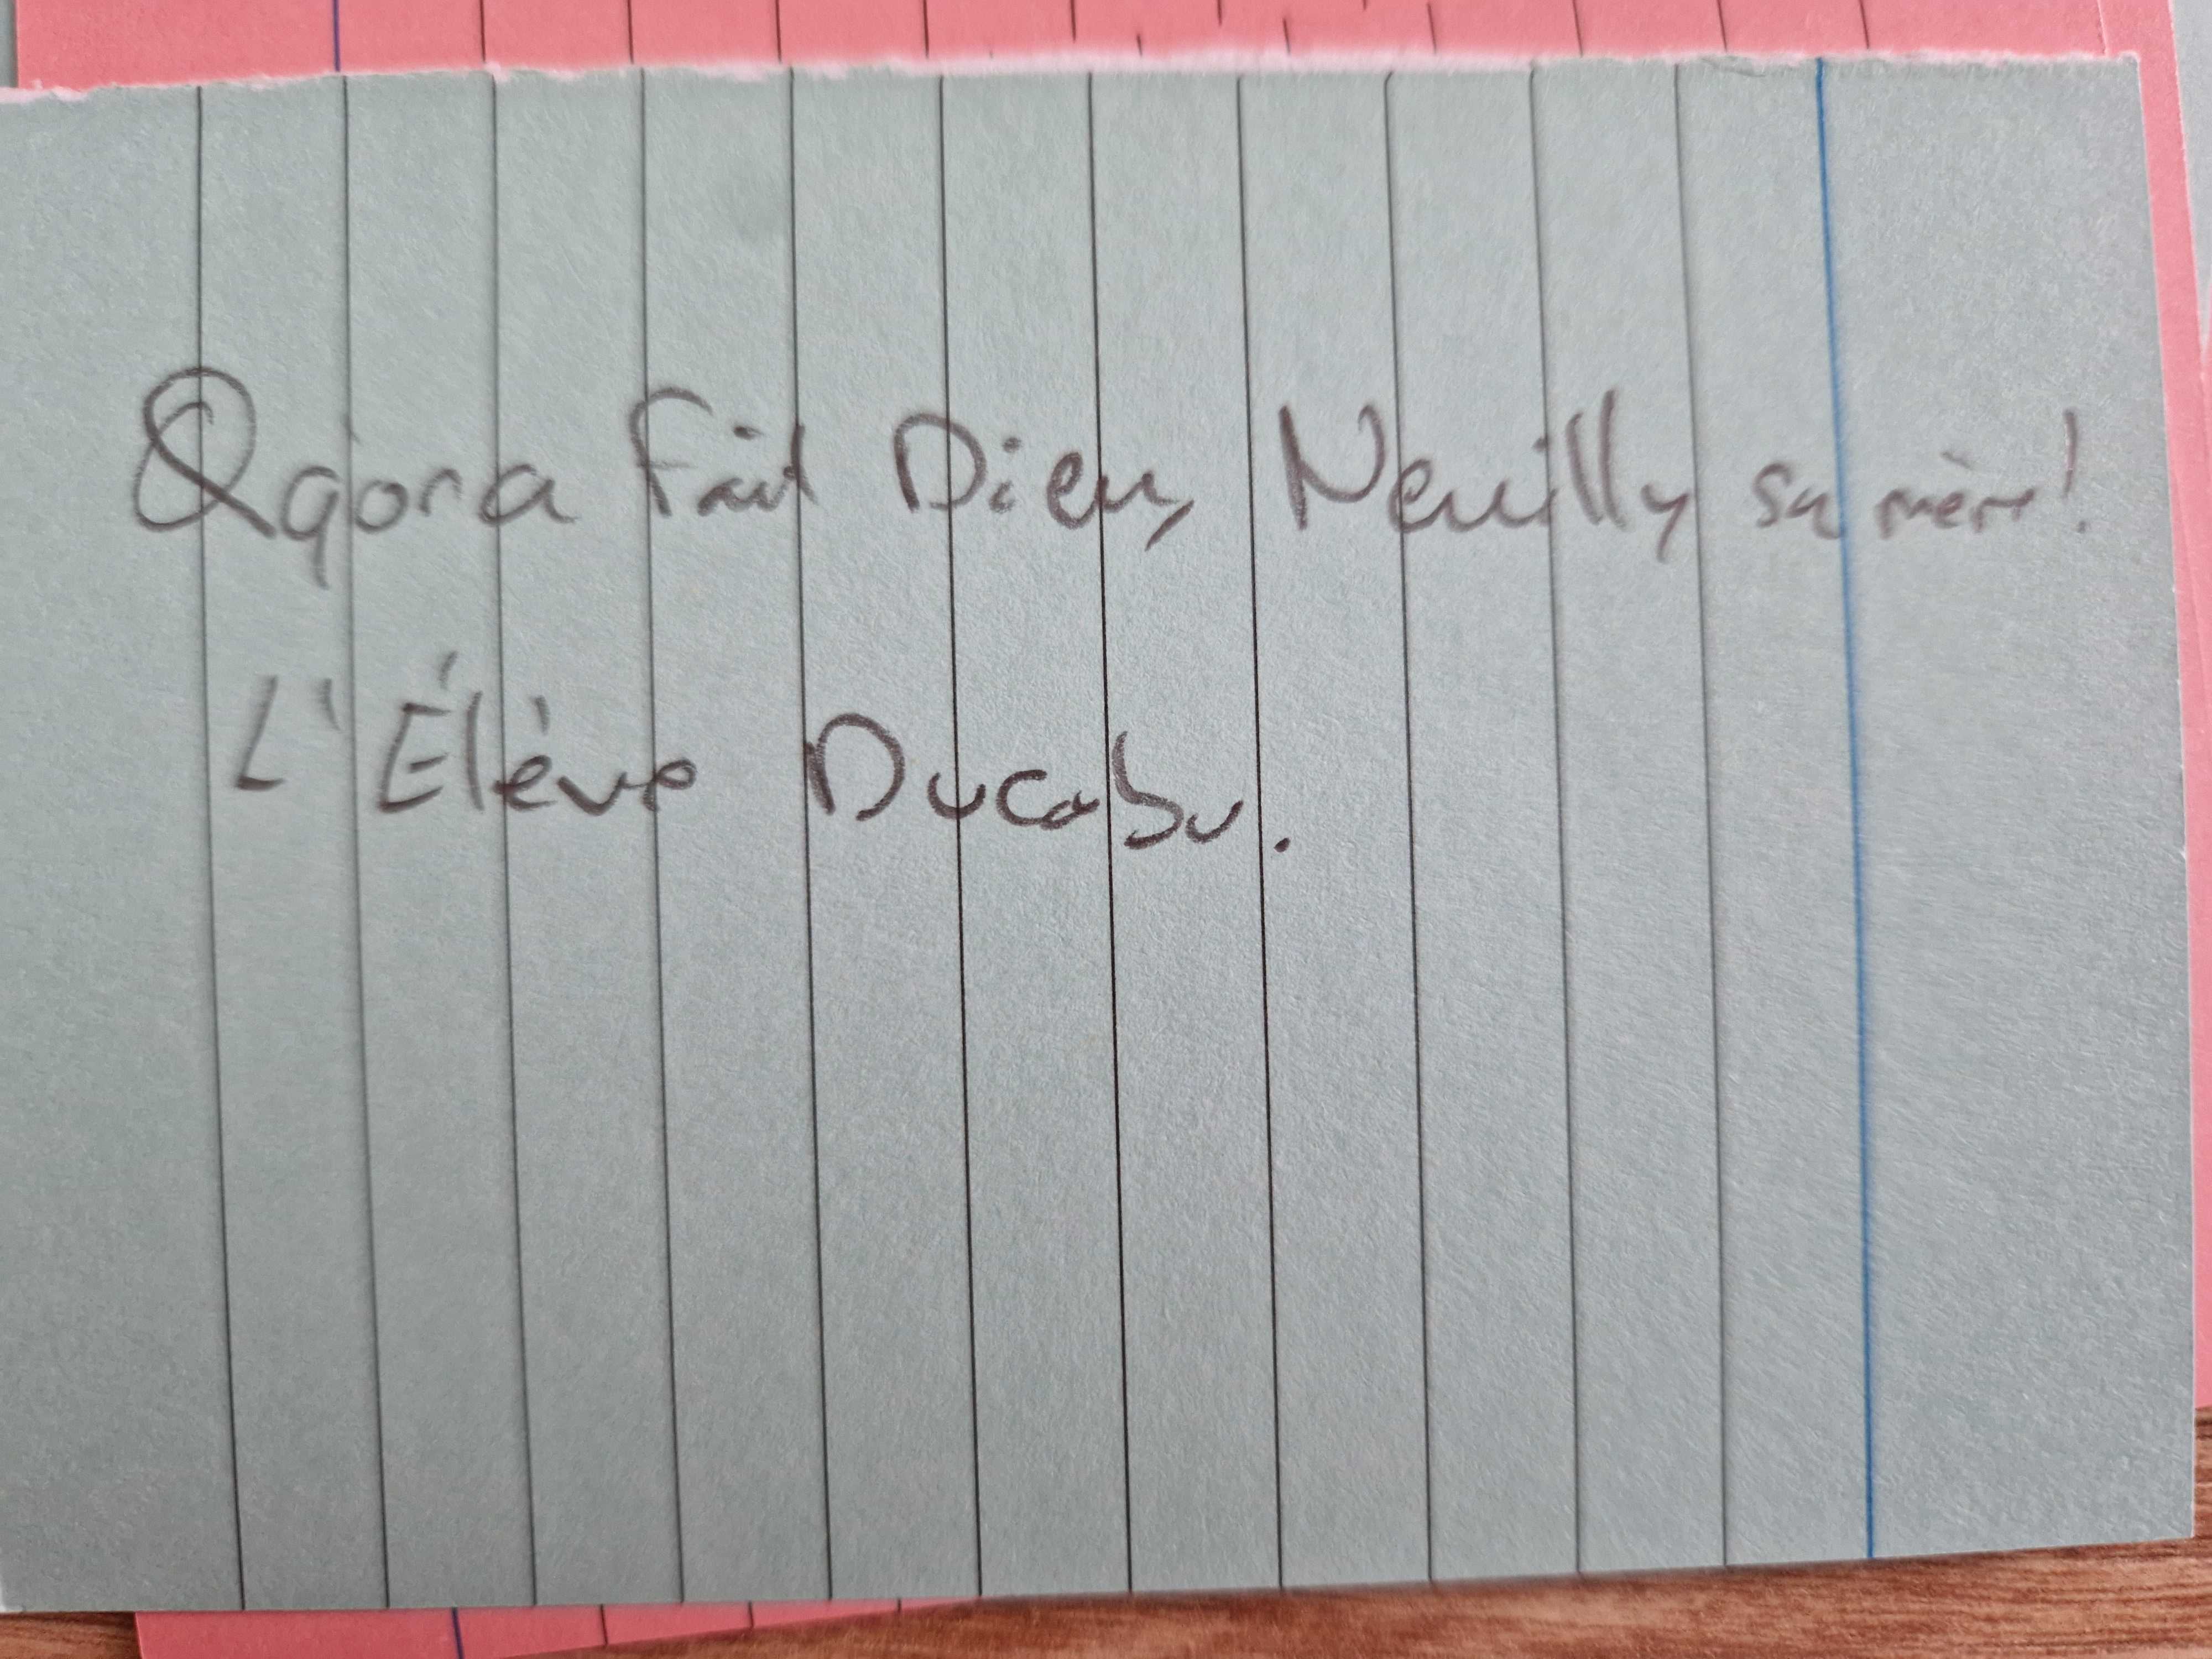 Qu'on a fait Dieu, Neuilly sa mère!
L'Élève Ducobu.